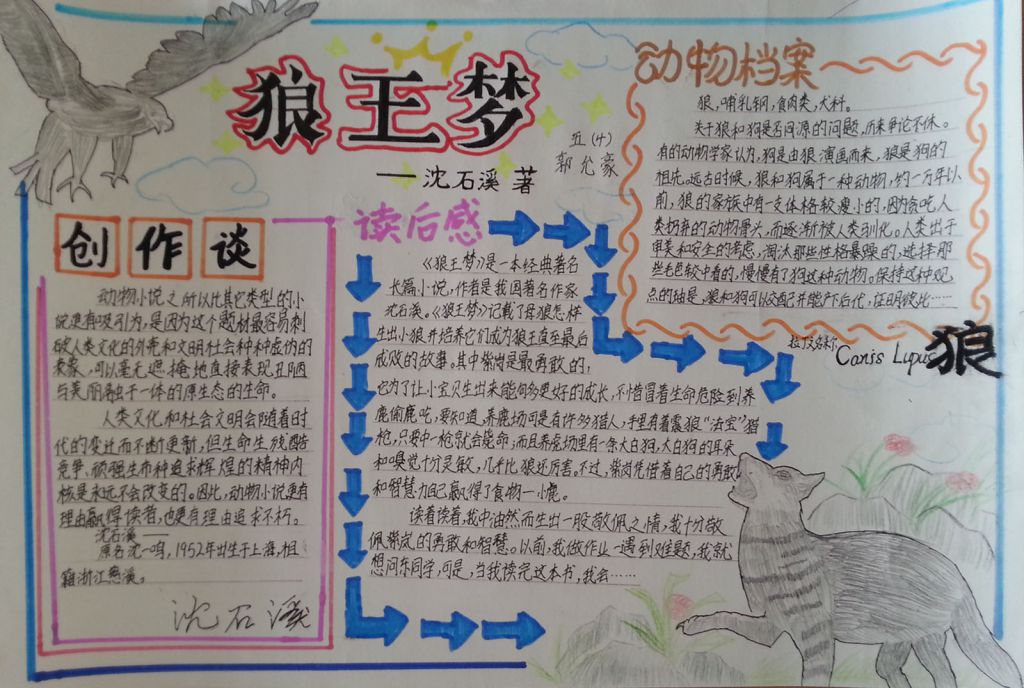 狼王梦
——沈石溪 著
五(十)
郭允豪
创作谈
动物小说之所以比其它类型的小
说更有吸引力,是因为这个题材最容易刺
破人类文化的外壳和文明社会种种虚伪的
表象,可以毫无遮掩地直接表现丑陋
与美丽融于一体的原生态的生命。
人类文化和社会文明会随着时
代的变迁而不断更新,但生命生残酷
竞争、顽强生存和追求辉煌的精神内
核是永远不会改变的。因此,动物小说更有
理由赢得读者,也更有理由追求不朽。
沈石溪——
原名沈一鸣,1952年出生于上海,祖
籍浙江慈溪。
沈石溪
读后感
《狼王梦》是一本经典著名
长篇小说,作者是我国著名作家
沈石溪。《狼王梦》记载了母狼怎样
生出小狼并培养它们成为狼王直至最后
成败的故事。其中紫岚是最勇敢的,
它为了让小宝贝生出来能何务更好的成长,不惜冒着生命危险到养
鹿偷鹿吃,要知道,养鹿场可是有许多猎人,手里有着震狼“法宝”猎
枪,只要中一枪就会毙命;而且养鹿场里有一条大白狗,大白狗的耳朵
和嗅觉十分灵敏,几乎比狼还厉害。不过,紫岚凭借着自己的勇敢
和智慧力自己赢得了食物一小鹿。
读着读着,我中油然而生出一股敬佩之情,我十分敬
佩紫岚的勇敢和智慧。以前,我做作业一遇到难题,我就
想问东同学,可是,当我读完这本书,我会……
动物档案
狼,哺乳钢,食肉类,犬科。
关于狼和狗是否同源的问题,历来争论不休。
有的动物学家认为,狗是由狼演画而来,狼是狗的
祖先,远古时候,狼和狗属于一种动物,约一万年以
前,狼的家族中有一支体格较瘦小的,因为贪吃人
类扔弃的动物骨头,而逐渐被人类驯化。人类出于
审美和安全的考虑,淘汰那些性格暴躁的,选择那
些毛色较中看的,慢慢有了狗这种动物。保持这种观
点的钠是,狼和狗可以交配并能产下后代,证明彼此……
拉丁文名称
Canis Lupus
狼